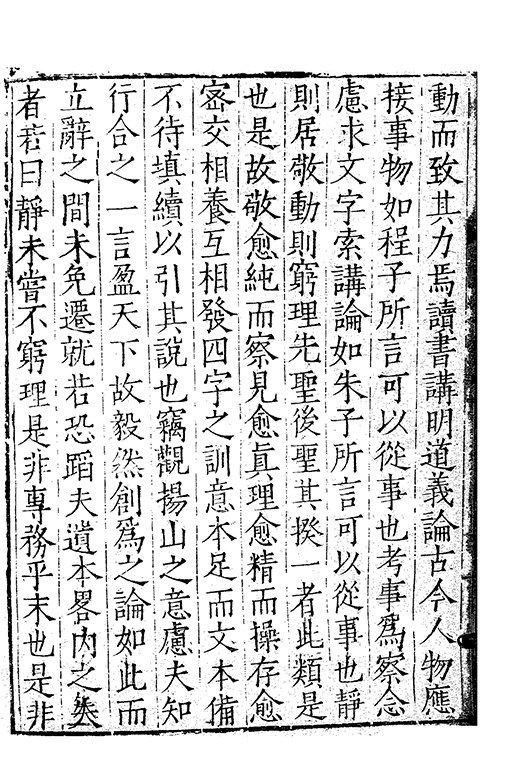 動而致其力焉讀書講明道義論古今人物應
接事物如程子所言可以從事也考事爲察念
慮求文字索講論如朱子所言可以從事也靜
則居敬動則窮理先聖後聖其揆一者此類是
也是故敬愈純而察見愈眞理愈精而操存愈
宻交相養互相發四字之訓意本足而文本備
不待填續以引其說也竊觀揚山之意慮夫知
行合之一言盈天下故毅然創爲之論如此而
立辭之間未免遷就若恐蹈夫遺本畧內之失
者若曰靜未嘗不窮理是非專務乎末也是非